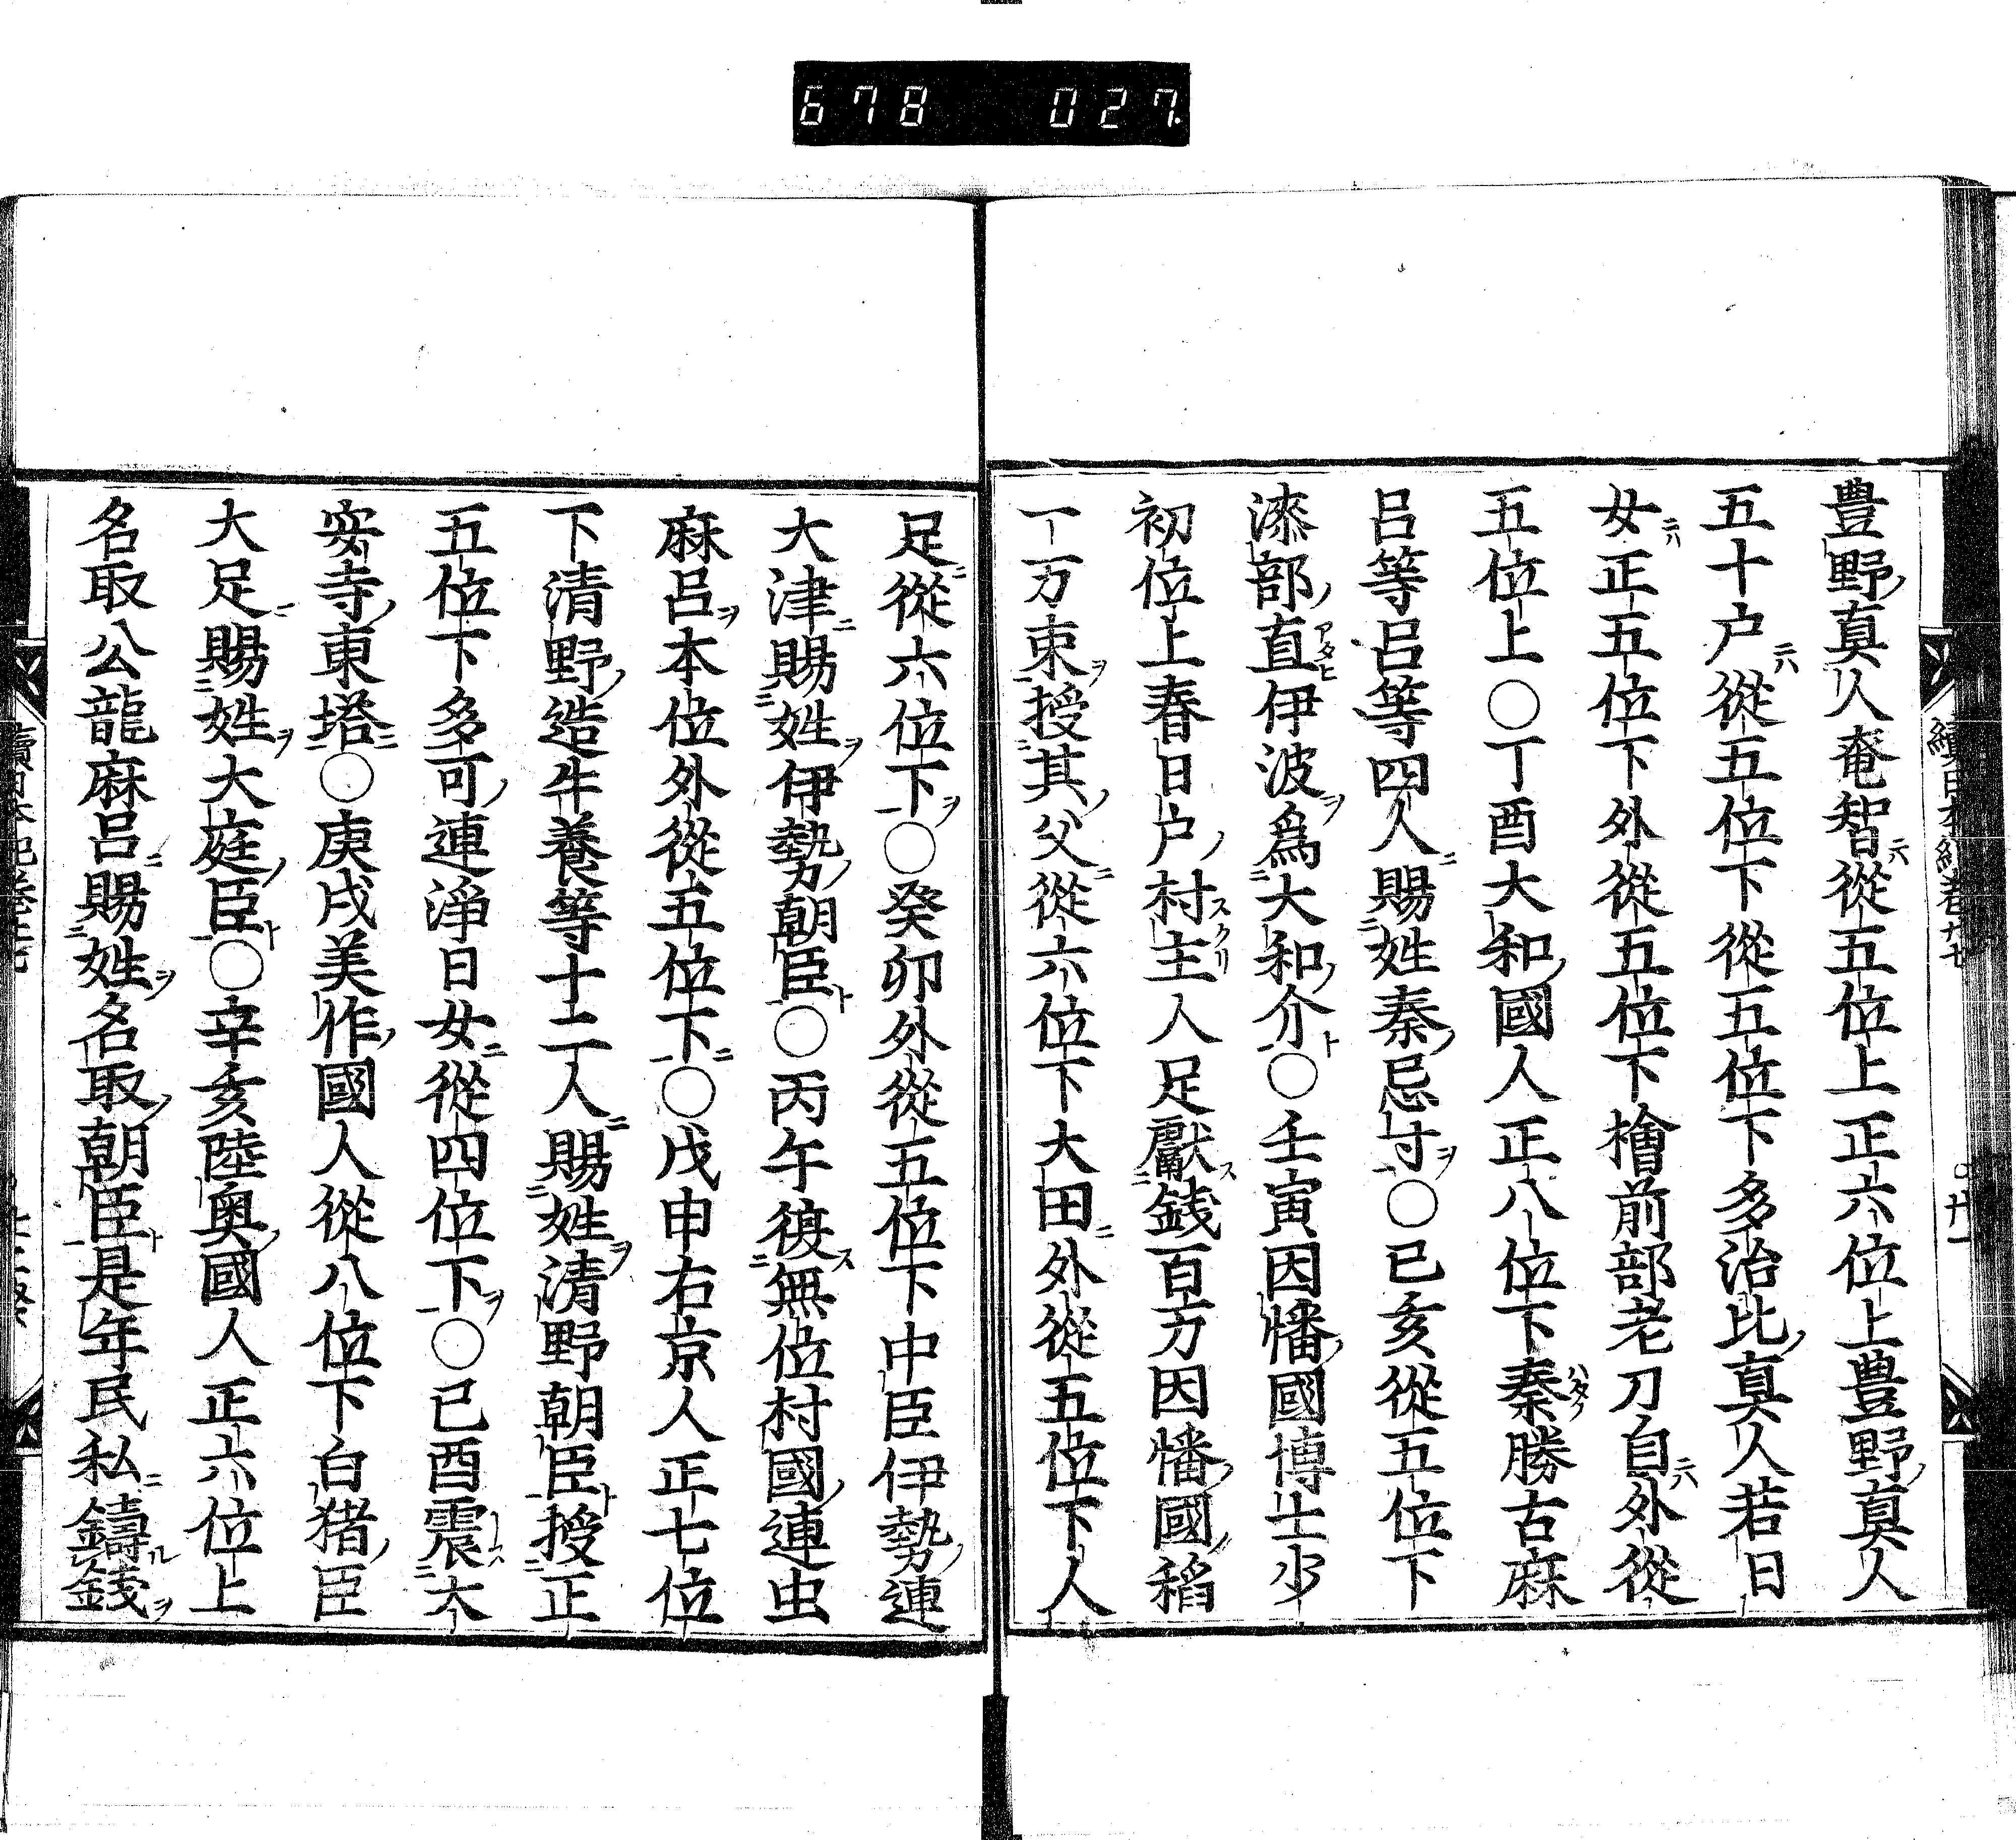 678 027.
豊野真人奄智從五位上正六位上豊野真人
五十户從五位下從五位下多治比真人若日
女正五位下外從五位下檜前部老刀自外從
五位上○丁酉大和國人正八位下秦勝古麻
吕等吕等四人賜姓秦忌寸○已亥從五位下
漆部直伊波爲大和介○壬寅因幡國博士少
初位上春日户村主人足獻銭百万因幡國稻
一万束授其父從六位下大田外從五位下人
足從六位下○癸卯外從五位下中臣伊勢連
大津賜姓伊勢朝臣○丙午復無位村國連虫
麻吕本位外從五位下○戊申右京人正七位
下清野造牛養等十二人賜姓清野朝臣授正
五位下多可連淨日女從四位下○已酉震大
安寺東塔○庚戌美作國人從八位下白猪臣
大足賜姓大庭臣○辛亥陸奥國人正六位上
名取公龍麻吕賜姓名取朝臣是年民私鑄銭